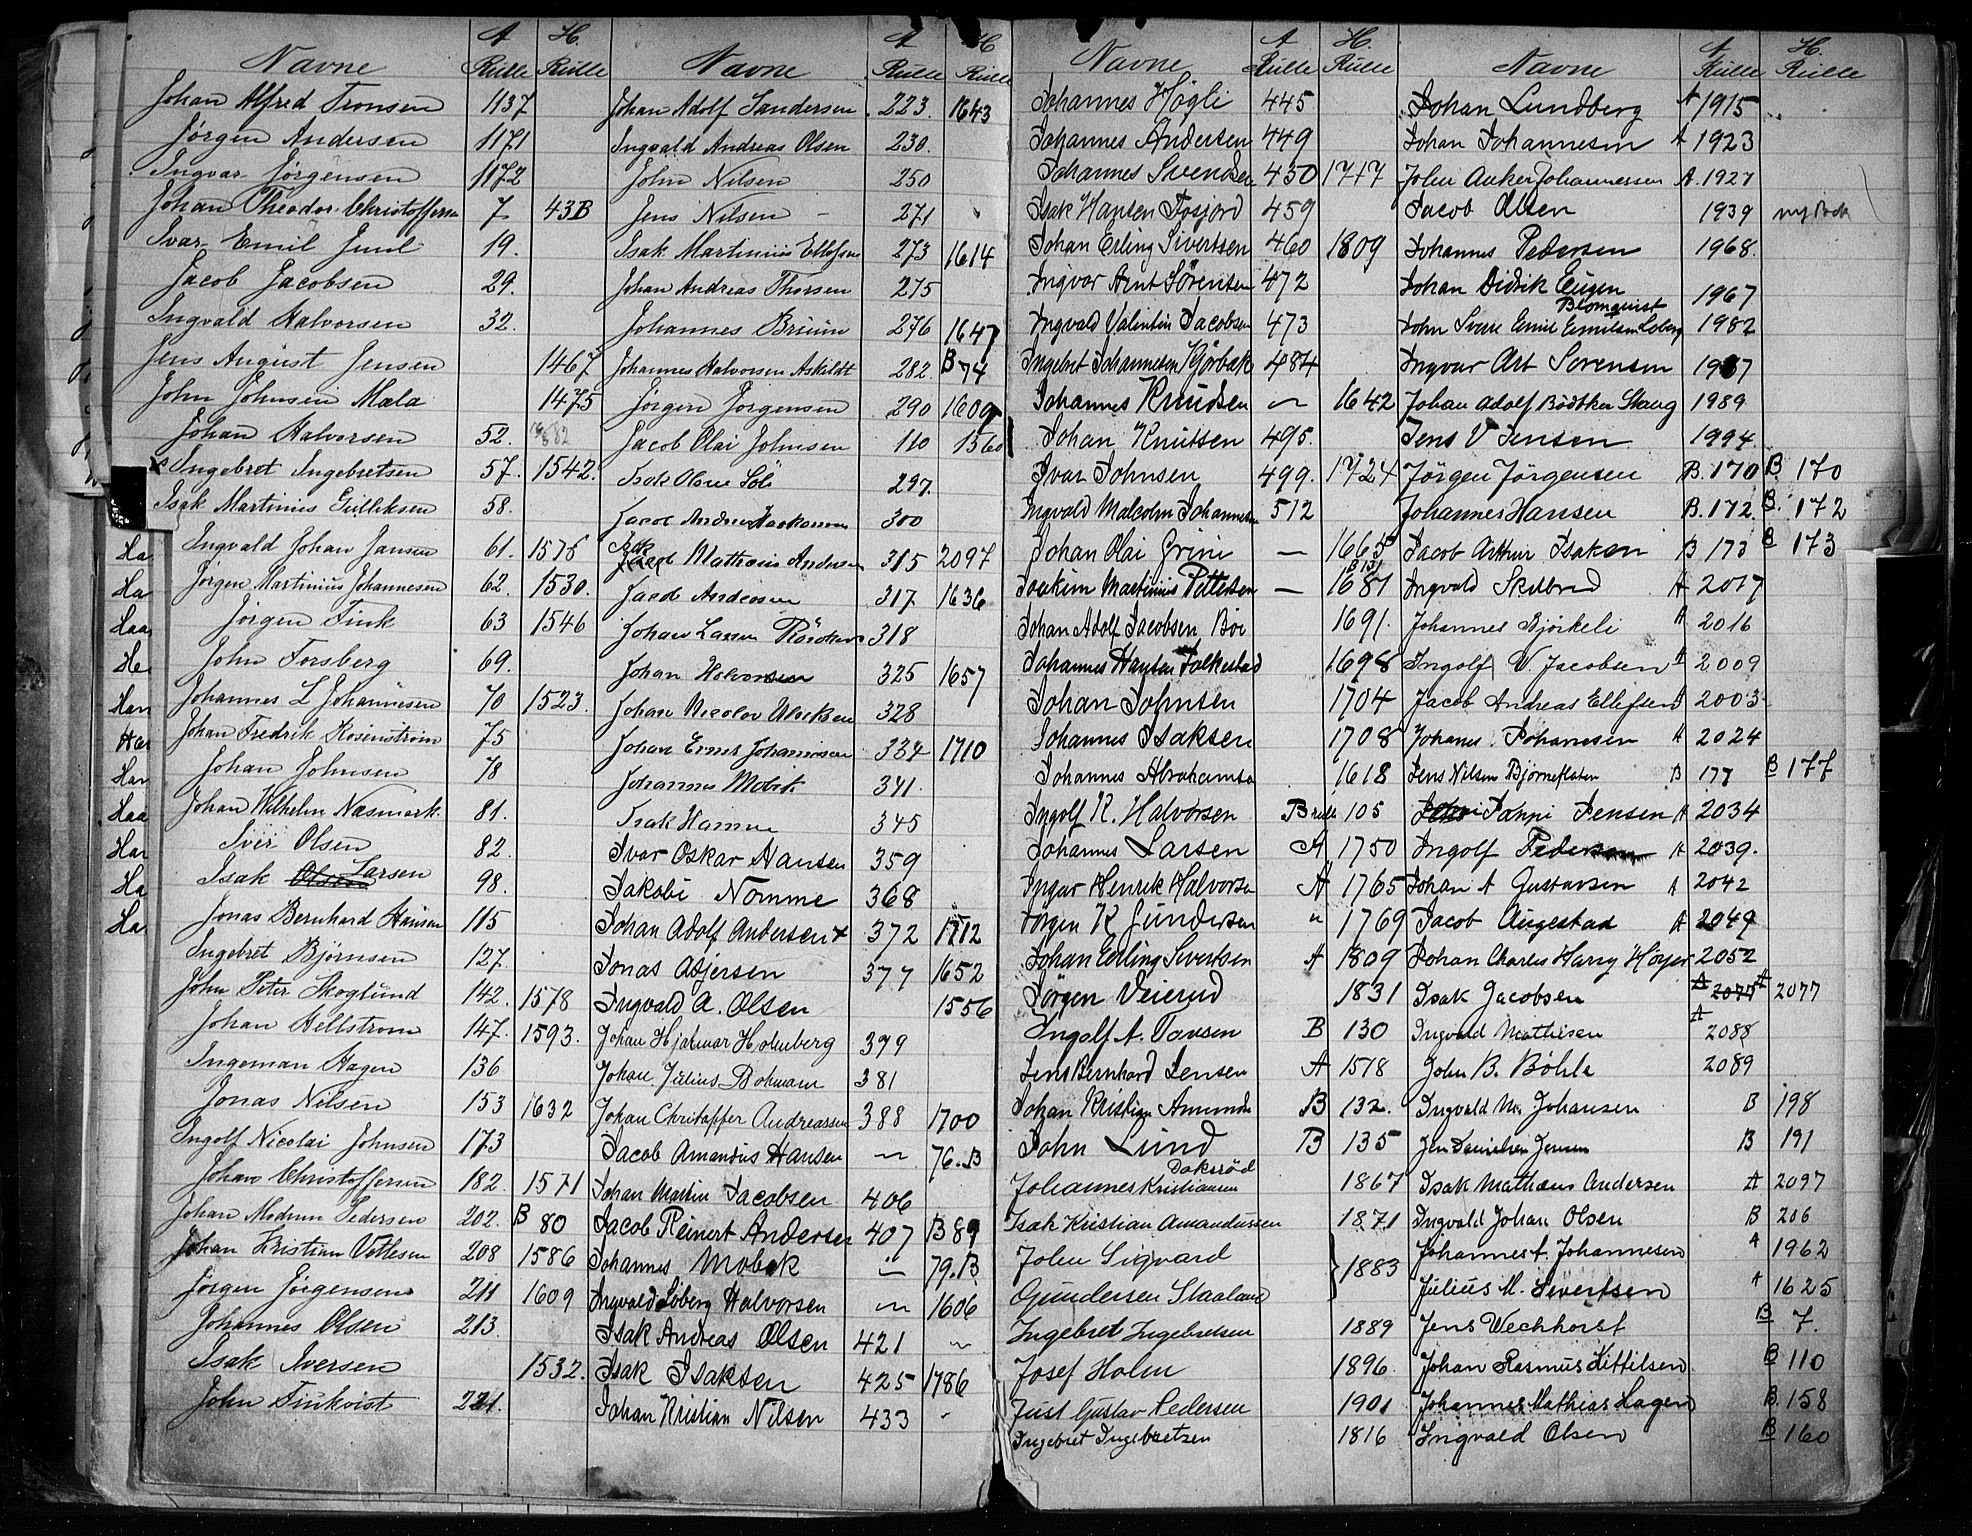 Navne A Rulle H. Rulle
Johan Alfred Tronsen 1137
Jørgen Andersen 1171
Ingvar Jørgensen 1172
Johan Theodor Christoffersen 7 43B
Ivar Emil Juul 19.
Jacob Jacobsen 29.
Ingvald Halvorsen 32.
Jens August Jensen 1467
John Johnsen Mæla 1475
Johan Halvorsen 52.
x Ingebret Ingebretsen 57. 1542.
Isak Martinius Gulliksen 58.
Ha Ingvald Johan Jansen 61. 1575
Ha Jörgen Martinius Johannesen 62. 1530.
Haa Jörgen Fink 63 1546
He John Forsberg 69.
Han Johannes L Johannesen 70 1523.
Har Johan Fredrik Rosenstrøm 75
Han Johan Johnsen 78
Haa Johan Wilhelm Næsmark. 81.
Har Iver Olsen 82.
Ha Isak Olsen Larsen 98.
Ha Jonas Bernhard Hansen 115
Ingebret Bjørnsen 127.
John Peter Skoglund 142. 1578
Johan Hellstrøm 147. 1593.
Ingeman Hagen 136
Jonas Nilsen 153 1632
Ingolf Nicolai Johnsen 173
Johan Christoffersen 182. 1571
Johan Pedersen 202. B 80
Johan Kristian Vetlesen 208 1586
Jørgen Jørgensen 211 1609
Johannes Olsen 213.
Isak Iversen 1532.
John Finkvist 221.
Navne A Rulle H Rulle
Johan Adolf Sandersen 223. 1643
Ingvald Andreas Olsen 230.
John Nilsen 250
Jens Nilsen 271
Isak Martinius Ellefsen 273 1614
Johan Andreas Thorsen 275
Johannes Bruun 276 1647
Johannes Halvorsen Askildt 282. B 74
Jørgen Jørgensen 290 1609
Jacob Olai Johnsen 110 1560
Isak Olaus 297.
Jacob Andreas 300
Isak Jacob Mathæus Andersen 315 2097
Jacob Andersen 317 1636
Johan Larsen 318
Johan Halvorsen 325 1657
Johan Nicolai 328
Johan Ernst Johannesen 334 1710
Johannes Mobæk 341.
Isak Hamme 345
Ivar Oskar Hansen 359
Jakobi Nomme 368
Johan Adolf Andersen x 372 1712
Jonas Asjersen 377 1652
Ingvald A. Olsen 1556
Johan Hjalmar Holmberg 379
Johan Julius Bohman 381
Johan Christopher Andreassen 388 1700
Jacob Amandus Hansen — 76. B
Johan Martin Jacobsen 406
Jacob Reinert Andersen 407 B 89
Johannes Mobæk — 79. B
Ingvald Loberg Halvorsen — 1606
Isak Andreas Olsen 421 ~
Isak Isaksen 425 1786
Johan Kristian Nilsen 433
Navne A Rulle H. Rulle
Johannes Høgli 445
Johannes Andersen 449
Johannes Svendsen 450 1717
Isak Hansen Fosjord 459
Johan Erling Sivertsen 460 1809
Ingvar Arnt Sörensen 472
Ingvald Valentin Jacobsen 473
Ingebret Johannesen Kjørbæk 484
Johannes Knudsen — 1642
Johan Knutsen 495.
Ivar Johnsen 499. 1724
Ingvald Malcolm Johannesen 512
Johan Olai Grini — 1665
B 131
Joakim Martinius Pettersen — 1681
Johan Adolf Jacobsen Boe 1691.
Johannes Hansen Folkestad 1698
Johan Johnsen 1704
Johannes Isaksen 1708
Johannes Abrahamsen 1618
Ingolf R. Halvorsen B rulle 105
Johannes Larsen A 1750
Ingvar Henrik Halvorsen A 1765
Jörgen K Gundersen " 1769
Johan Erling Sivertsen A 1809
Jörgen Veierud 1831
Ingolf A. Tovsen B 130
Jens Bernhard Jensen A 1578
Johan Kristian Amunds B 132.
John Lund B 135
Johannes Kristiansen Doksrød 1867
Isak Kristian Amandussen 1871
John Sigvard
Gundersen Staaland } 1883
Ingebret Ingebretsen 1889
Josef Holm 1896.
Just Gustav Pedersen 1901
Ingebret Ingebretsen 1816
Navne A Rulle H. Rulle
Johan Lundberg A 1915
Johan Johannesen A 1923
John Anker Johannessen A. 1927
Jacob Olsen 1939 ny Bok
Johannes Pedersen 1968.
Johan Didrik Eugen
Blomquist 1967
John Sverre Emil Emilsen Loberg 1982
Ingvar Art Sorensen 1987
Johan Adolf Bödtker Skaug 1989
Jens V Jensen 1994
Jörgen Jörgensen B. 170 B. 170
Johannes Hansen B. 172. B. 172
Jacob Arthur Isaksen B 173 B 173
Ingvald Skilbred A 2017
Johannes Bjørkeli A 2016
Ingolf W Jacobsen A 2009
Jacob Andreas Ellefsen A 2003
Johans. Johannesen A 2024
Jens Nilsen Bjørneflaten B 177 B 177
Jonni Jensen A 2034
Ingolf Pedersen A 2039.
Johan A Gustavsen A 2042
Jacob Augestad A 2049
Johan Charles Harry Höyer 2052
Isak Jacobsen A 2077 A 2077
Ingvald Mathisen A 2088
John B. Böhle 2089
Ingvald M. Johansen B 198
Jens Danielsen Jensen B 191
Isak Mathæus Andersen A 2097
Ingvald Johan Olsen B 206
Johannes A. Johannesen A 1962
Julius M. Sivertsen A 1625
Jens Wechhorst B 7.
Johan Rasmus Kittilsen B 110
Johannes Mathias Hagen B. 158
Ingvald Olsen B 160